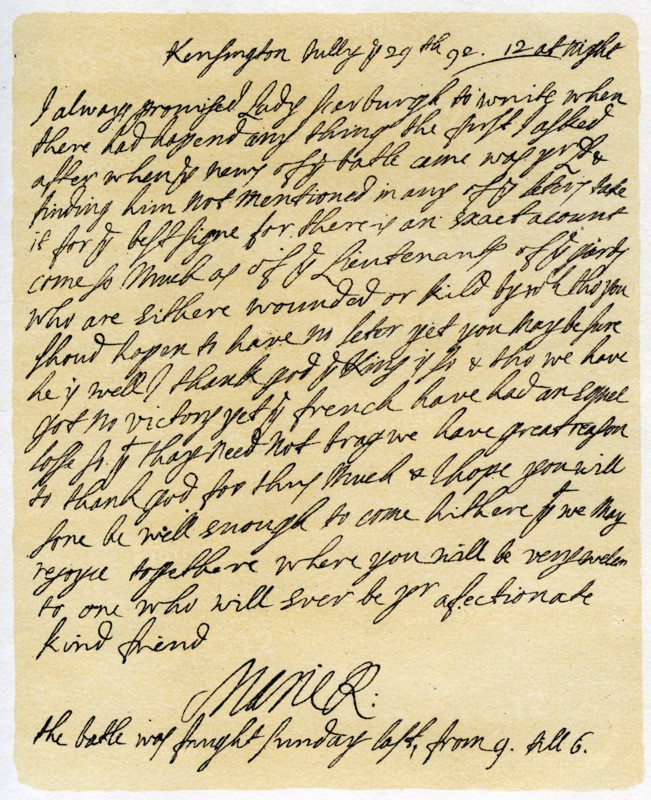 Kensington Jully yᵉ 29th 92. 12 at night
I always promised Lady Scarburgh to write when
there had hapend any thing the first I asked
after when yᵉ news of yᵉ batle came was yʳ Ld &
finding him not mentioned in any of yᵉ leters take
it for yᵉ best signe for there is an exact acount
come so much as of yᵉ Lieutenants of yᵉ gards
who are eithere wounded or kild by wch tho you
shoud hapen to have no leter yet you may be sure
he is well I thank god yᵉ King is so & tho we have
got no victory yet yᵉ french have had an equel
losse so yᵗ thay need not brag we have great reason
to thank god for thus much & I hope you will
sone be well enough to come hithere yᵗ we may
rejoyce togethere where you will be very welcom
to one who will ever be yʳ afectionate
kind friend
Marie R:
the batle was fought sunday last, from 9. till 6.